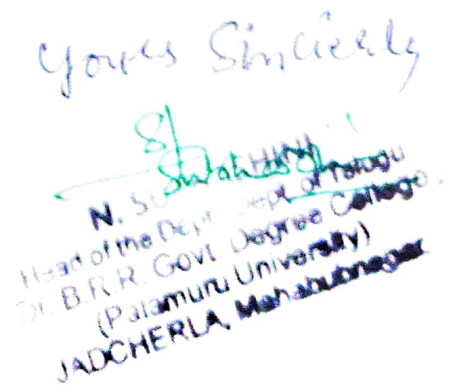 Yours Sincierly
N.
Head of the Dept. Dept of Telugu
Dr. B.R.R. Govt. Degree College
(Palamuru University)
JADCHERLA, Mahabubnagar